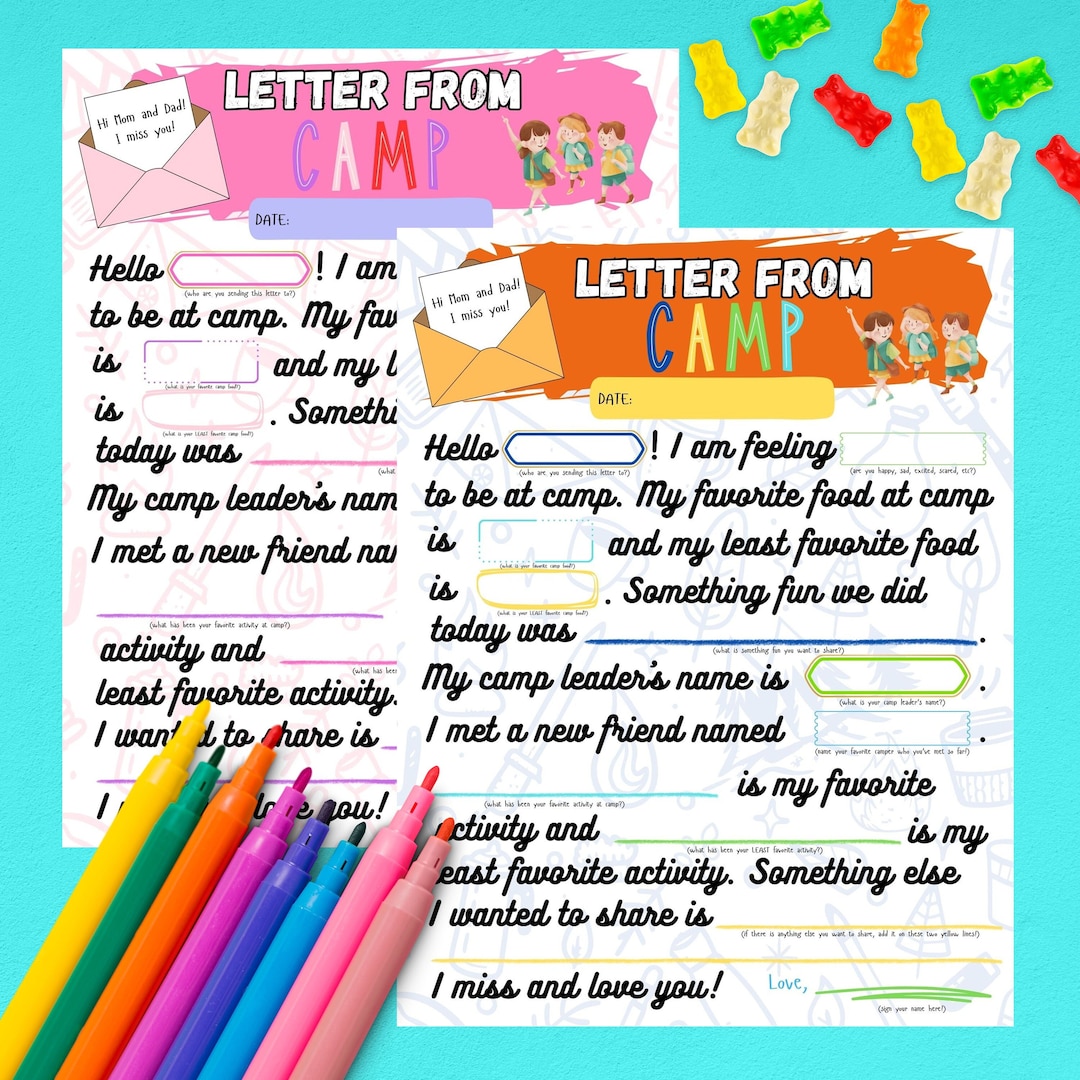 LETTER FROM
CAMP
Hi Mom and Dad!
I miss you!
DATE:
Hello ! I am
(who are you sending this letter to?)
to be at camp. My fav
is and my l
(what is your favorite camp food?)
is . Somethi
(what is your LEAST favorite camp food?)
today was
(what
My camp leader's nam
I met a new friend na
(what has been your favorite activity at camp?)
activity and
(what has bee
least favorite activity.
I wanted to share is
I love you!
LETTER FROM
CAMP
Hi Mom and Dad!
I miss you!
DATE:
Hello ! I am feeling
(who are you sending this letter to?) (are you happy, sad, excited, scared, etc?)
to be at camp. My favorite food at camp
is and my least favorite food
(what is your favorite camp food?)
is . Something fun we did
(what is your LEAST favorite camp food?)
today was .
(what is something fun you want to share?)
My camp leader's name is .
(what is your camp leader's name?)
I met a new friend named .
(name your favorite camper who you've met so far!)
is my favorite
(what has been your favorite activity at camp?)
activity and is my
(what has been your LEAST favorite activity?)
east favorite activity. Something else
I wanted to share is
(if there is anything else you want to share, add it on these two yellow lines!)
I miss and love you! Love,
(sign your name here!)